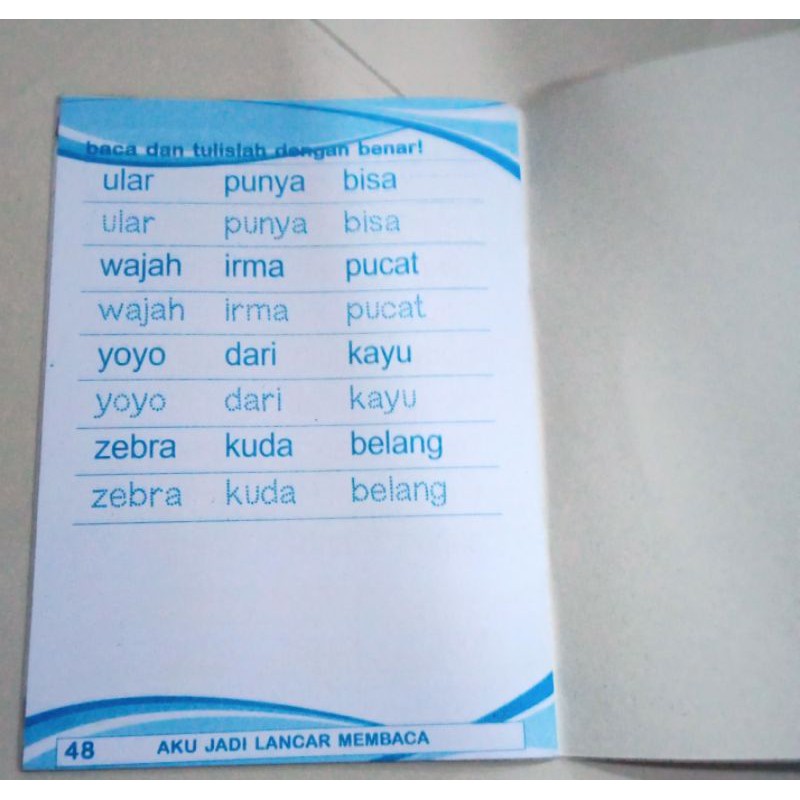 baca dan tulislah dengan benar!
ular punya bisa
ular punya bisa
wajah irma pucat
wajah irma pucat
yoyo dari kayu
yoyo dari kayu
zebra kuda belang
zebra kuda belang
48 AKU JADI LANCAR MEMBACA